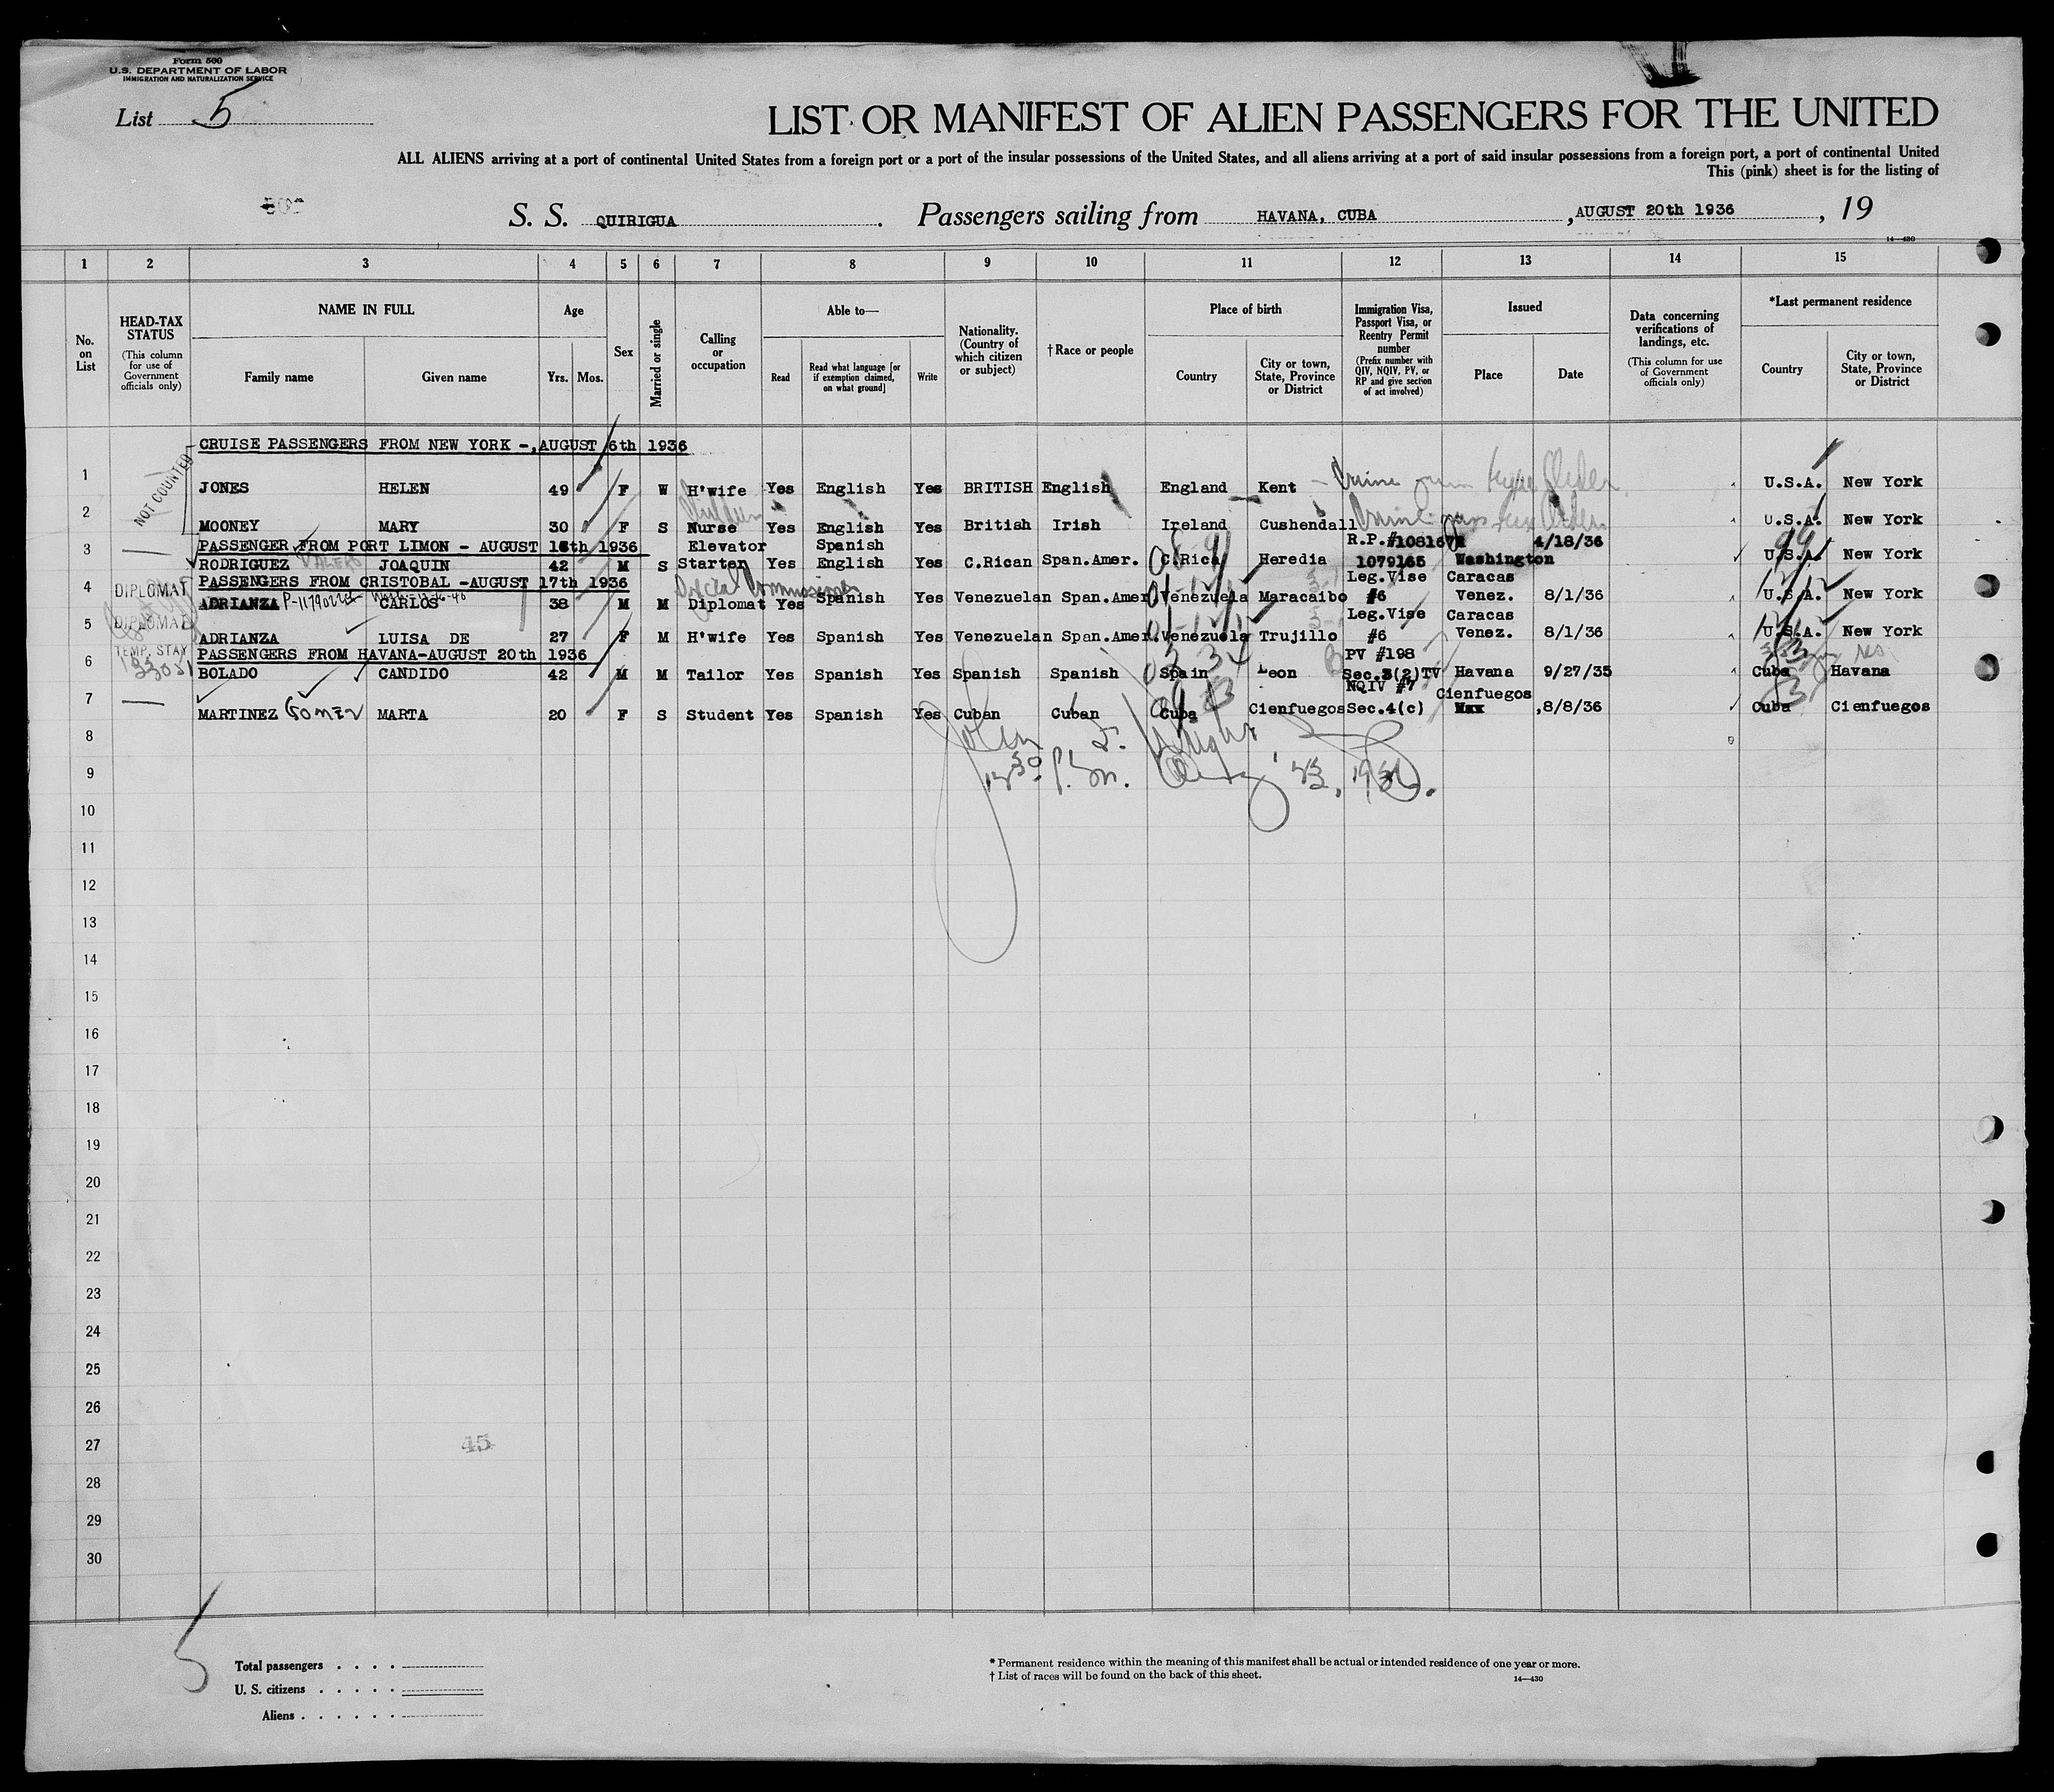 Form 500
U.S. DEPARTMENT OF LABOR
IMMIGRATION AND NATURALIZATION SERVICE
List 5
LIST OR MANIFEST OF ALIEN PASSENGERS FOR THE UNITED
ALL ALIENS arriving at a port of continental United States from a foreign port or a port of the insular possessions of the United States, and all aliens arriving at a port of said insular possessions from a foreign port, a port of continental United
This (pink) sheet is for the listing of
S. S. QUIRIGUA. Passengers sailing from HAVANA, CUBA, AUGUST 20th 1936, 19
14—430
1 2 3 4 5 6 7 8 9 10 11 12 13 14 15
No. on List
HEAD-TAX STATUS (This column for use of Government officials only)
NAME IN FULL
Family name Given name
Age
Yrs. Mos.
Sex
Married or single
Calling or occupation
Able to—
Read Read what language [or if exemption claimed, on what ground] Write
Nationality. (Country of which citizen or subject)
†Race or people
Place of birth
Country City or town, State, Province or District
Immigration Visa, Passport Visa, or Reentry Permit number (Prefix number with QIV, NQIV, PV, or RP and give section of act involved)
Issued
Place Date
Data concerning verifications of landings, etc. (This column for use of Government officials only)
*Last permanent residence
Country City or town, State, Province or District
CRUISE PASSENGERS FROM NEW YORK -,AUGUST 6th 1936
NOT COUNTED
1 JONES HELEN 49 F W H'wife Yes English Yes BRITISH English England Kent U.S.A. New York
2 MOONEY MARY 30 F S Nurse Yes English Yes British Irish Ireland Cushendall U.S.A. New York
PASSENGER FROM PORT LIMON - AUGUST 16th 1936 Elevator Spanish R.P. 4/18/36
3 RODRIGUEZ VALERIO JOAQUIN 42 M S Starter Yes English Yes C.Rican Span.Amer. C.Rica Heredia 1079165 Washington U.S.A. New York
PASSENGERS FROM CRISTOBAL -AUGUST 17th 1936 Special Commissioner Leg.Vise Caracas
4 DIPLOMAT ADRIANZA CARLOS 38 M M Diplomat Yes Spanish Yes Venezuelan Span.Amer Venezuela Maracaibo #6 Venez. 8/1/36 U.S.A. New York
Leg.Vise Caracas
5 DIPLOMAT ADRIANZA LUISA DE 27 F M H'wife Yes Spanish Yes Venezuelan Span.Amer. Venezuela Trujillo #6 Venez. 8/1/36 U.S.A. New York
TEMP. STAY PASSENGERS FROM HAVANA-AUGUST 20th 1936 PV #198
6 BOLADO CANDIDO 42 M M Tailor Yes Spanish Yes Spanish Spanish Spain Leon Sec.3(2)TV Havana 9/27/35 Cuba Havana
NQIV #7 Cienfuegos
7 MARTINEZ GOMEZ MARTA 20 F S Student Yes Spanish Yes Cuban Cuban Cuba Cienfuegos Sec.4(c) ,8/8/36 Cuba Cienfuegos
8
9
10
11
12
13
14
15
16
17
18
19
20
21
22
23
24
25
26
27
45
28
29
30
5
Total passengers
U. S. citizens
Aliens
* Permanent residence within the meaning of this manifest shall be actual or intended residence of one year or more.
† List of races will be found on the back of this sheet.
14—430